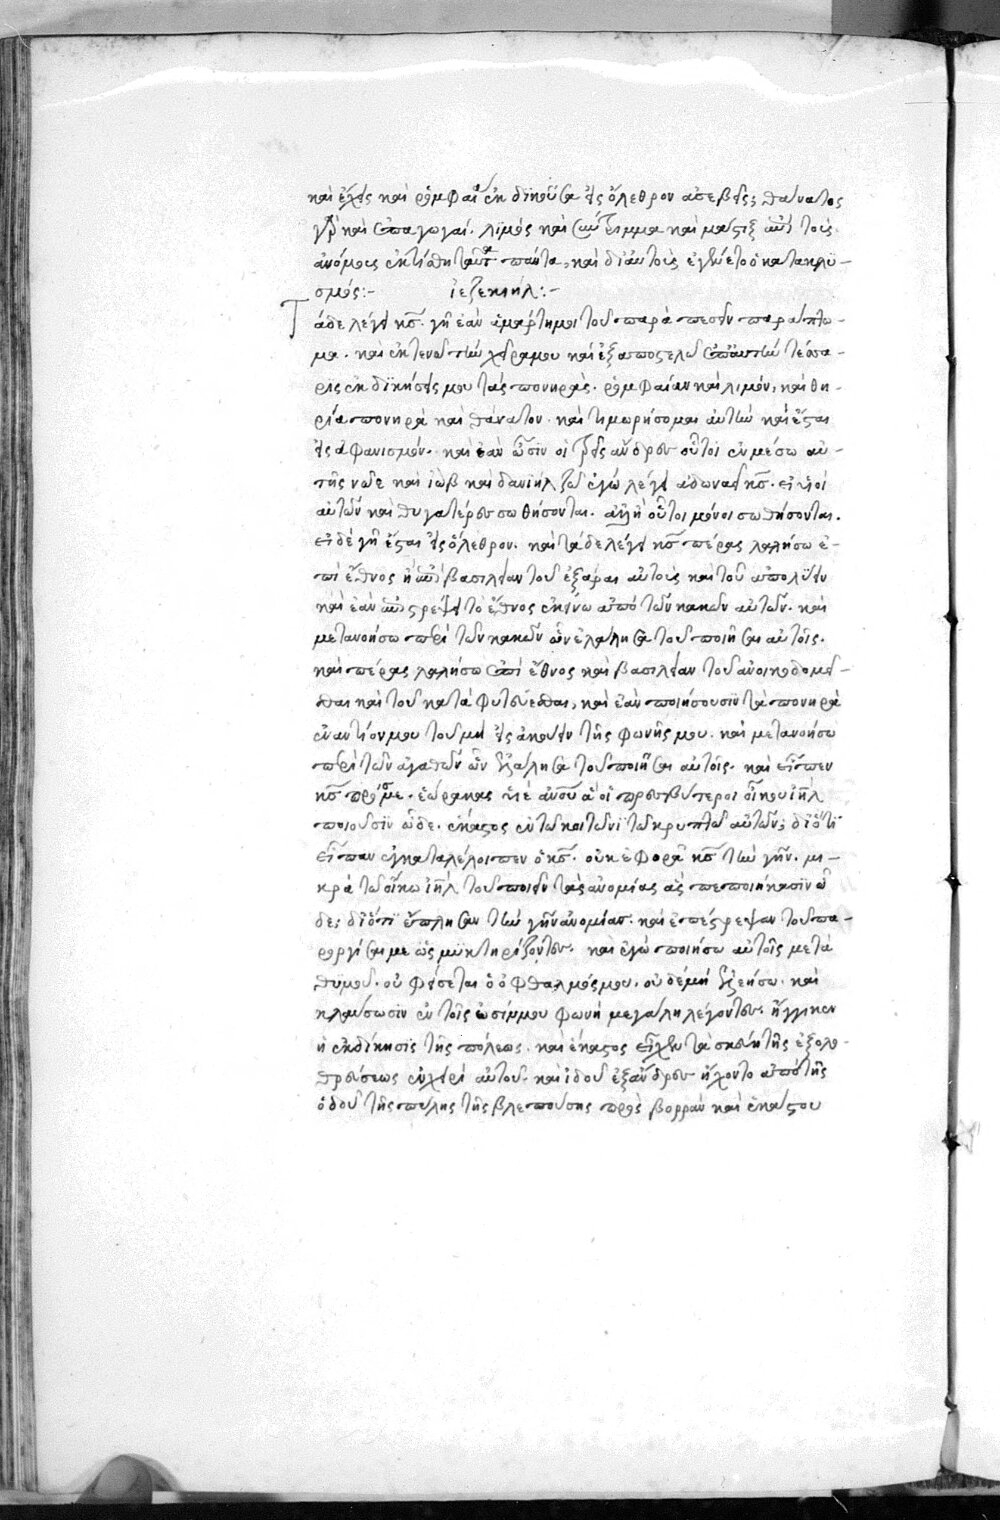 καὶ ἔχεις καὶ ῥομφαία ἐκδικοῦσα εἰς ὄλεθρον ἀσεβεῖς; θάνατος
γὰρ καὶ ἐπαγωγαί. λιμός καὶ σύντριμμα καὶ μάστιξ ἐπὶ τοὺς
ἀνόμους ἐκτίσθη ταῦτα πάντα, καὶ δι' αὐτοὺς ἐγένετο ὁ κατακλυ-
σμός:- ἰεζεκιήλ:-
Τάδε λέγει κς. γῆ ἐὰν ἁμάρτη μοι τοῦ παραπεσεῖν παράπτω-
μα. καὶ ἐκτενῶ τὴν χεῖρα μου καὶ ἐξαποστελῶ ἐπ' αὐτὴν τέσσα-
ρις ἐκδικήσεις μου τὰς πονηρὰς. ῥομφαίαν καὶ λιμόν, καὶ θη-
ρία πονηρὰ καὶ θάνατον. καὶ τιμωρήσομαι αὐτὴν καὶ ἔσται
εἰς ἀφανισμόν. καὶ ἐὰν ὦσιν οἱ τρεῖς ἄνδρες οὗτοι ἐν μέσω αὐ-
τῆς νῶε καὶ ἰὼβ καὶ δανιὴλ ζῶ ἐγώ λέγει ἀδωναῒ κς. εἰ υἱοί
αὐτῶν καὶ θυγατέρες σωθήσονται. ἀλλ' ἢ οὗτοι μόνοι σωθήσονται.
εἰ δέ γῆ ἔσται εἰς ὄλεθρον. καὶ τάδε λέγει κς πέρας λαλήσω ἐ-
πὶ ἔθνος ἢ ἐπὶ βασιλείαν τοῦ ἐξᾶραι αὐτοὺς καὶ τοῦ ἀπολύειν
καὶ ἐὰν ἐπιστρέψει τὸ ἔθνος ἐκεῖνω ἀπό τῶν κακῶν αὐτῶν. καὶ
μετανοήσω περὶ τῶν κακῶν ὧν ἐλάλησα τοῦ ποιῆσαι αὐτοῖς.
καὶ πέρας λαλήσω ἐπὶ ἔθνος καὶ βασιλείαν τοῦ ἀνοικοδομεῖ-
σθαι καὶ τοῦ καταφυτεύεσθαι, καὶ ἐὰν ποιήσουσιν τὰ πονηρὰ
ἐναντίον μου τοῦ μὴ εἰσακούειν τῆς φωνῆς μου. καὶ μετανοήσω
περὶ τῶν ἀγαθῶν ὧν ἐλάλησα τοῦ ποιῆσαι αὐτοῖς. καὶ εἶπεν
κς πρός με. ἑώρακας υἱὲ ἀνου ἃ οἱ πρεσβύτεροι οἴκου ιηλ
ποιοῦσιν ὧδε. ἕκαστος ἐν τῶ κοιτῶνι τῶ κρυπτῶ αὐτῶν; διότι
εἶπαν ἐγκαταλέλοιπεν ὁ κς. οὐκ ἐφορᾶ κς τὴν γῆν. μι-
κρὰ τῶ οἴκω ιηλ τοῦ ποιεῖν τὰς ἀνομίας ἃς πεποιήκασιν ὧ
δε; διότι ἔπλησαν τὴν γῆν ἀνομίας. καὶ ἐπέστρεψαν τοῦ πα-
ροργίσαι με ὡς μυκτηρίζοντες. καὶ ἐγὼ ποιήσω αὐτοῖς μετὰ
θυμοῦ. οὐ φείσεται ὁ ὀφθαλμός μου. οὐδέ μὴ ἐλεήσω. καὶ
κλαύσωσιν ἐν τοῖς ὠσίν μου φωνῆ μεγάλη λέγοντες. ἤγγικεν
ἡ ἐκδίκησις τῆς πόλεως. καὶ ἕκαστος εἶχεν τὰ σκεύη τῆς ἐξολο-
θρεύσεως ἐν χειρὶ αὐτοῦ. καὶ ἰδοὺ ἓξ ἄνδρες ἤχοντο ἀπὸ τῆς
ὁδοῦ τῆς πύλης τῆς βλεπούσης πρὸς βορρᾶν καὶ ἑκάστου